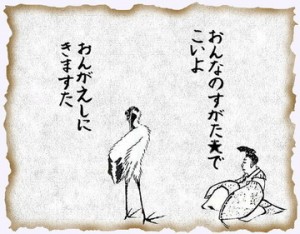 おんなのすがた★で
こいよ
おんがえしに
きますた